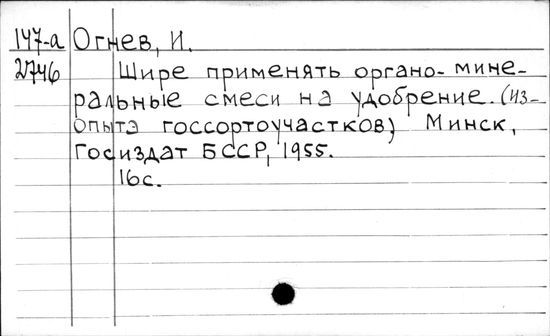 147-а Огнев, И.
2746 Шире применять органо-мине-
ральные смеси на удобрение. (из-
опыта госсортоучастков) Минск,
Госиздат БССР, 1955.
16с.